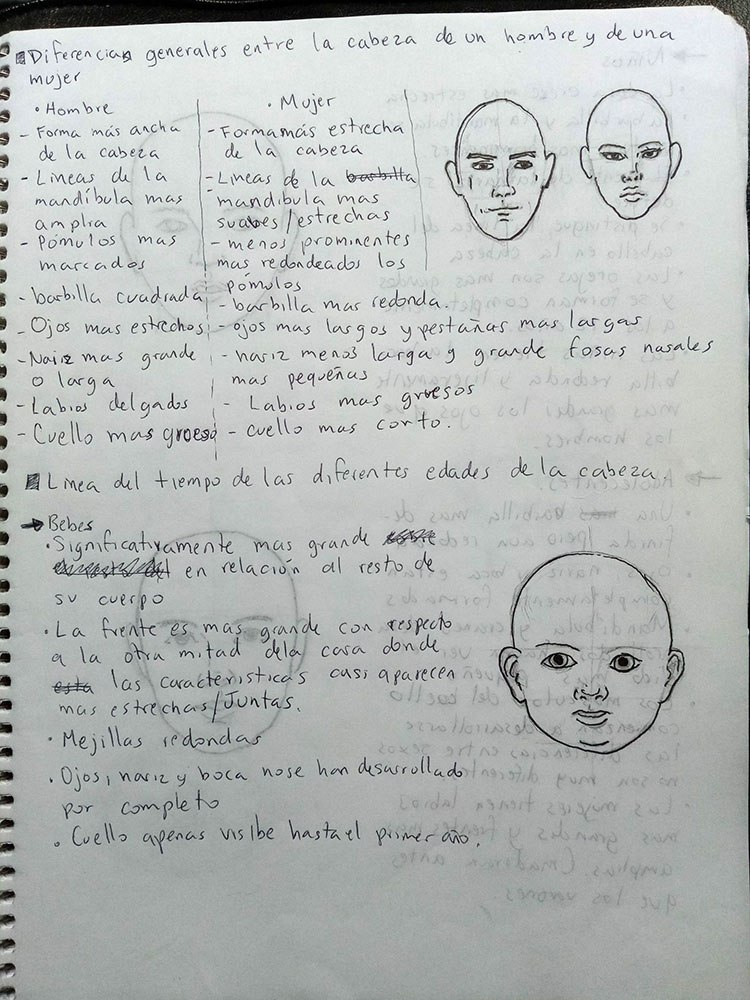 Diferencias generales entre la cabeza de un hombre y de una
mujer
• Hombre
- Forma más ancha
de la cabeza
- Lineas de la
mandíbula mas
amplia
- Pómulos mas
marcados
- barbilla cuadrada
- Ojos mas estrechos
- Nariz mas grande
o larga
- Labios delgados
- Cuello mas grueso
• Mujer
- Forma más estrecha
de la cabeza
- Lineas de la barbilla
mandibula mas
suabes/estrechas
- menos prominentes
mas redondeados los
pómulos
- barbilla mas redonda.
- ojos mas largos y pestañas mas largas
- nariz menos larga y grande fosas nasales
mas pequeñas
- Labios mas gruesos
- cuello mas corto.
Linea del tiempo de las diferentes edades de la cabeza
→ Bebes
• Significativamente mas grande
en relación al resto de
su cuerpo
• La frente es mas grande con respecto
a la otra mitad dela casa donde
esta las caracteristicas casi aparecen
mas estrechas/Juntas.
• Mejillas redondas
• Ojos, nariz y boca nose han desarrollado
por completo
• Cuello apenas visibe hasta el primer año.